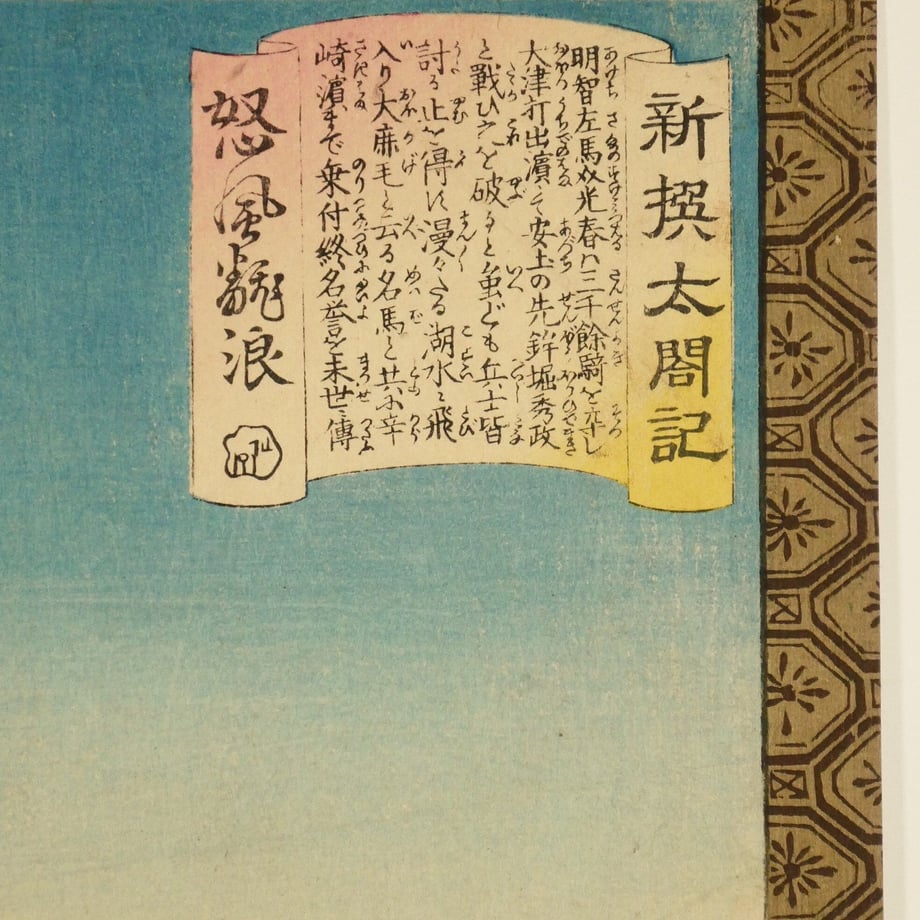 新撰太閤記
明智左馬助光春ハ三千餘騎を卒し
大津打出濱にて安土の先鉾堀秀政
と戰ひ之を破ると虽ども兵士皆
討る止を得ず漫々たる湖水に飛
入り大鹿毛と云る名馬と共に辛
崎濱まで乗付終名誉を末世に傳
怒風飜浪